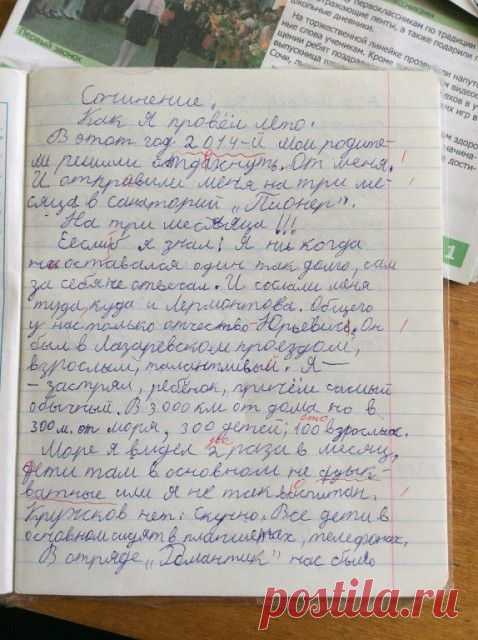 первоклассникам по традиции
отражающие ленты, а также подарили
школьные дневники.
На торжественной линейке прозвучали напут
ные слова ученикам. Кроме
щении ребят поздрав
выпускница
Сочи,
Первый звонок
1
Сочинение.
Как Я провёл лето.
В этот год 2014-й мои родите-
ли решили отдахнуть. От меня.
И отправили меня на три ме-
сяца в санаторий „Пионер".
На три месяца!!!
Еесли б я знал! Я ни когда
не оставался один так долго, сам
за себя не отвечал. И сослали меня
туда, куда и Лермонтова. Общего
у нас только отчество Юрьевич. Он
был в Лазаревском проездом,
взрослый, талантливый. Я—
– застрял, ребёнок, причём самый
обычный. В 3.000 км от дома но в
сто
300 м. от моря, 300 детей, 100 взрослых.
две
Море я видел 2 рази в месяц,
дети там в основном не адык-
ватные или я не так воспитан.
Кружков нет. Скучно. Все дети в
основном сидят в планшетах, телефонах.
В отряде „Романтик" нас было
postila.ru